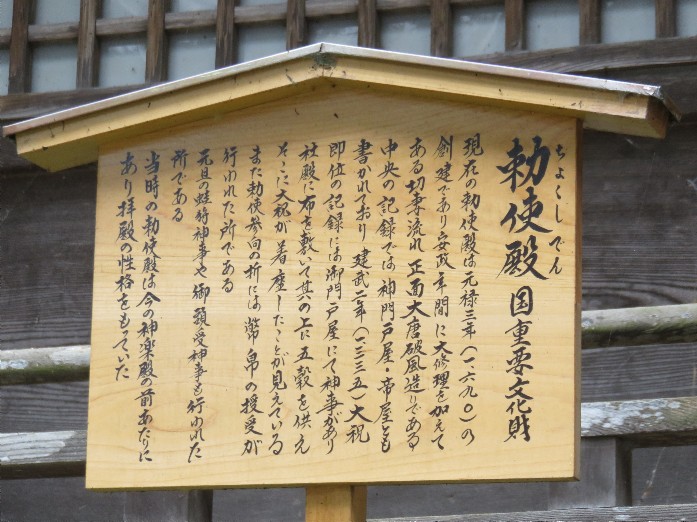 ちょくしでん
勅使殿 国重要文化財
現在の勅使殿は元禄三年(一六九〇)の
創建であり安政年間に大修理を加えて
ある切妻流れ正面大唐破風造りである
中央の記録では神門戸屋・帝屋とも
書かれており建武二年(一三三五)大祝
即位の記録には御門戸屋にて神事があり
社殿に布を敷いて其の上に五穀を供え
そこに大祝が着座したことが見えている
また勅使参向の折には幣帛の授受が
行われた所である
元旦の蛙狩神事や御頭受神事も行われた
所である
当時の勅使殿は今の神楽殿の前あたりに
あり拝殿の性格をもっていた